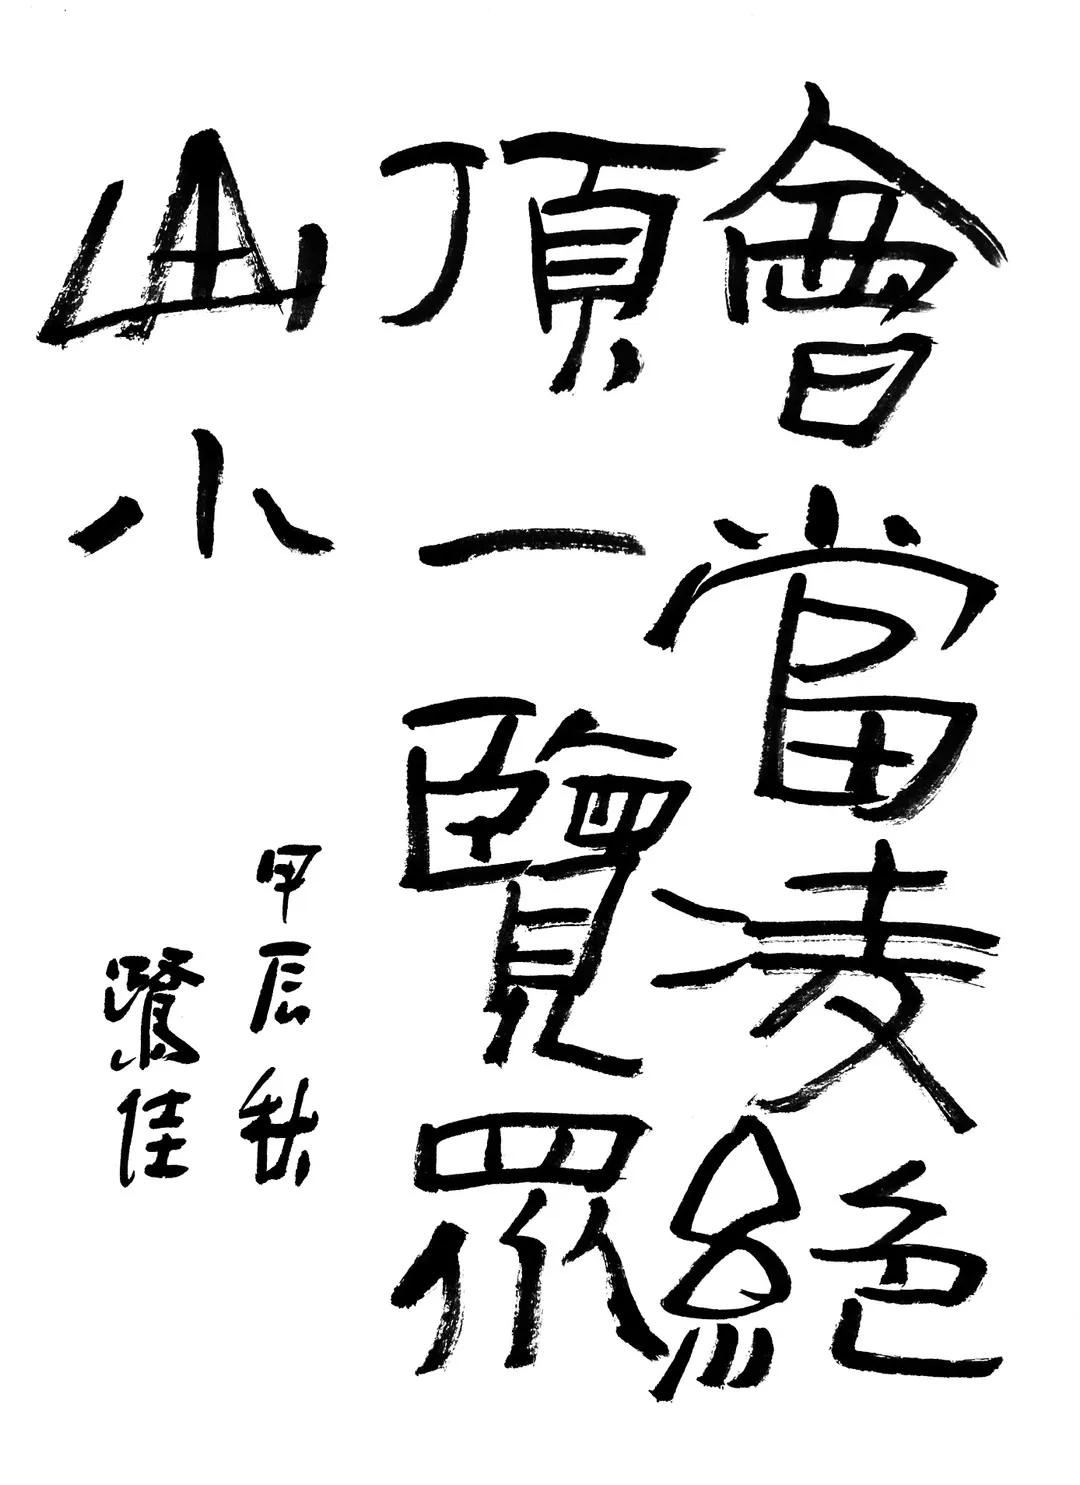 會當凌絕
頂一覽眾
山小
甲辰秋
佳